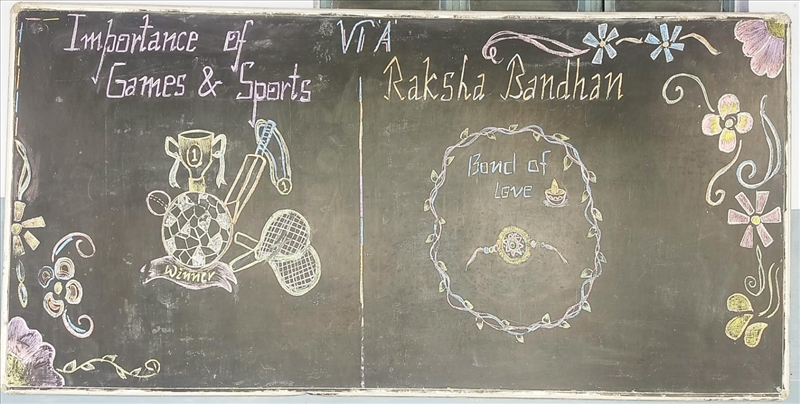 Importance of
Games & Sports
1
Winner
VI A
Raksha Bandhan
Bond of
Love